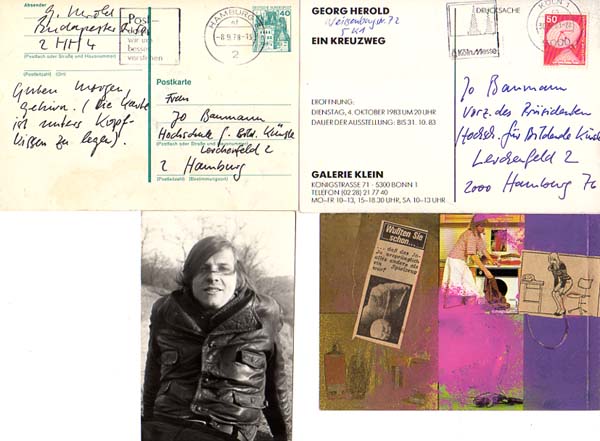 Absender
G. Herold
Budapester
2 HH 4
(Postleitzahl) (Ort)
Post-
wir uns
besser
verstehen
HAMBURG
-8.9.78
2
40
Postkarte
Frau
Jo Baumann
Hochschule f. Bild. Künste
(Postfach oder Straße und Hausnummer)
Lerchenfeld 2
2 Hamburg
(Postleitzahl) (Bestimmungsort)
Guten Morgen,
gehirn. (Die Karte
ist unters Kopf-
kissen zu legen).
GEORG HEROLD
5 K 1
EIN KREUZWEG
ERÖFFNUNG:
DIENSTAG, 4. OKTOBER 1983 UM 20 UHR
DAUER DER AUSSTELLUNG: BIS 31. 10. 83
GALERIE KLEIN
KÖNIGSTRASSE 71 · 5300 BONN 1
TELEFON (02 28) 21 77 40
MO-FR 10-13, 15-18.30 UHR, SA 10-13 UHR
DRUCKSACHE
KölnMesse
KÖLN 1
50
Jo Baumann
Vorz. des Präsidenten
Hochsch. für Bildende Künste
Lerchenfeld 2
2000 Hamburg 76
Wußten Sie
schon...
... daß das Jo-
Jo ursprünglich
alles andere als
ein Spielzeug
war?